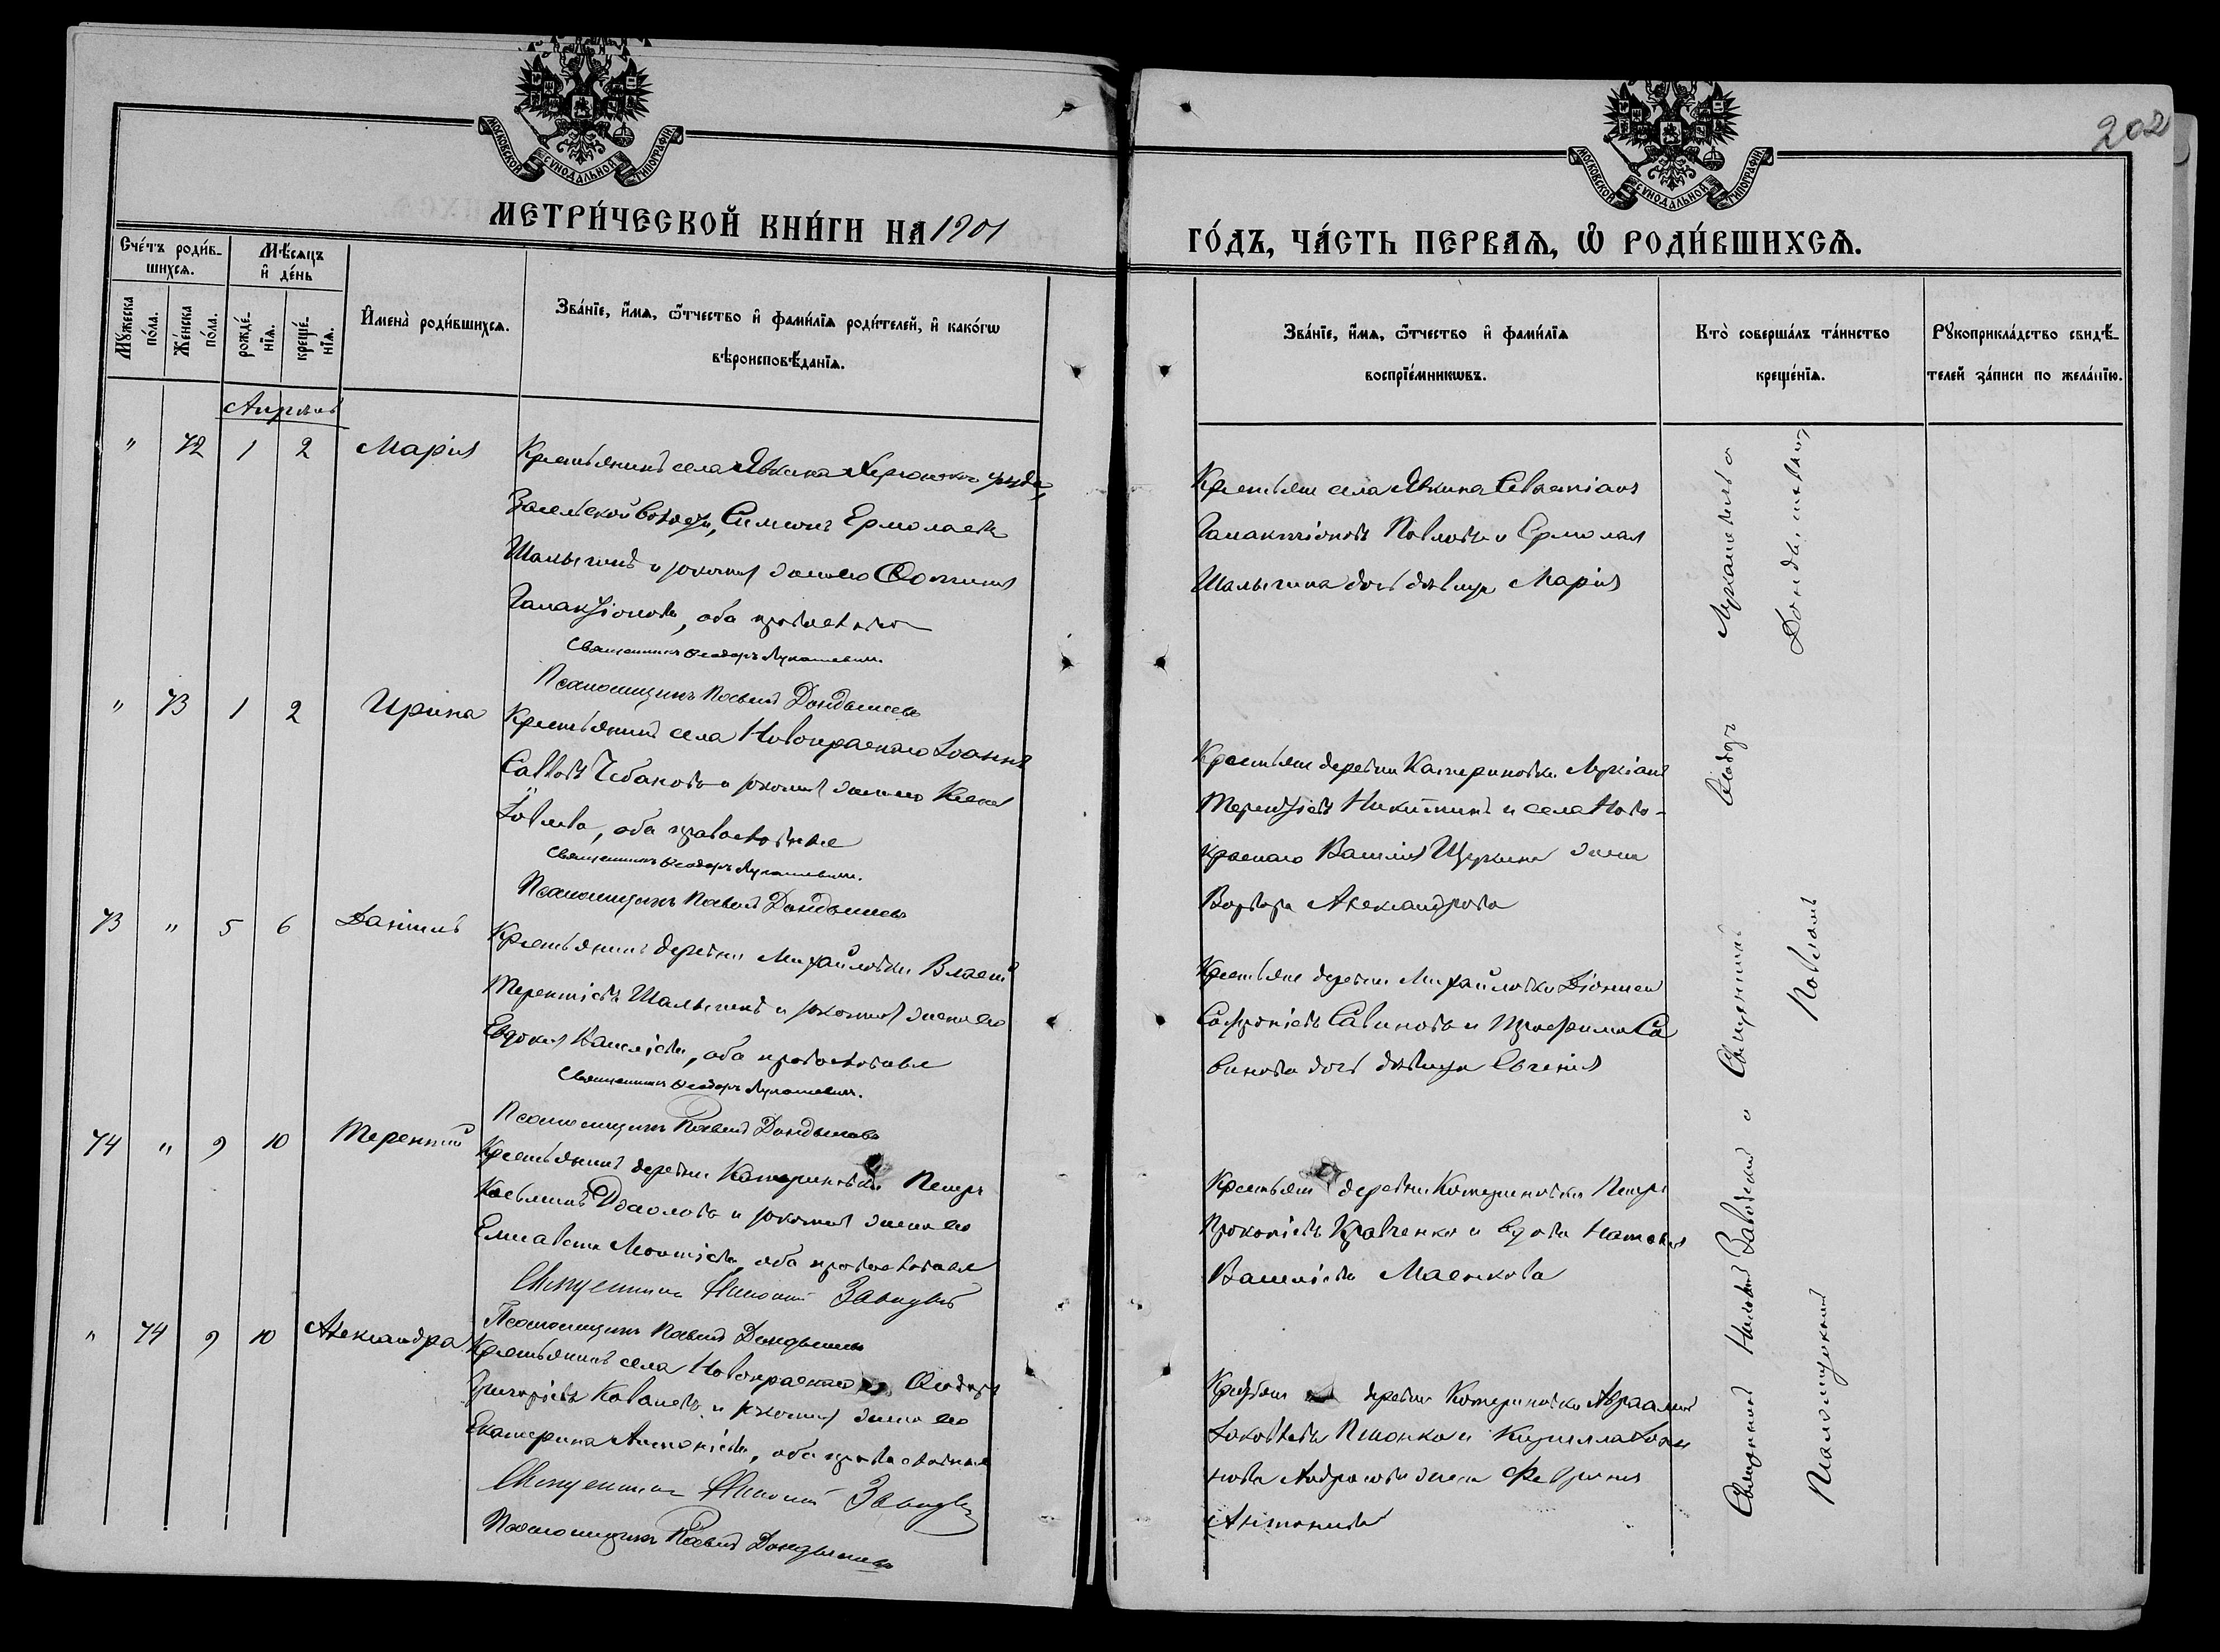 202
МОСКОВСКОЙ СѴНОДАЛЬНОЙ ТИПОГРАФІИ
МОСКОВСКОЙ СѴНОДАЛЬНОЙ ТИПОГРАФІИ
МЕТРИ́ЧЕСКОЙ КНИ́ГИ НА 1901
ГО́ДЪ, ЧА́СТЬ ПЕРВАѦ, Ѡ҆ РОДИ́ВШИХСѦ.
Сче́тъ роди́в-
шихсѧ.
Мꙋ́жеска по́ла.
Же́нска по́ла.
Мѣ́сѧцъ
и҆ де́нь
рожде́-
нїѧ.
креще́-
нїѧ.
И҆мена̀ роди́вшихсѧ.
Зва́нїе, и҆́мѧ, ѻ҆́тчество и҆ фами́лїѧ роди́телей, и҆ како́гѡ
вѣроисповѣ́данїѧ.
Зва́нїе, и҆́мѧ, ѻ҆́тчество и҆ фами́лїѧ
воспрїе́мникѡвъ.
Кто̀ соверша́лъ та́инство
креще́нїѧ.
Рꙋкоприкла́дство свидѣ́-
телей за́писи по жела́нїю.
Апрѣль
" 72 1 2 Марія
Крестьянинъ села Явкина Херсонскаго уѣзда,
волости, Симеонъ Ермолаевъ
Шалыгинъ и законная жена его Фотинія
Галактіонова, оба православнаго
Священникъ Ѳеодоръ Лукашевич.
Псаломщикъ Павелъ Дондышевъ
Крестьяне села Явкина Севастіанъ
Галактіоновъ Павловъ и Ермолая
Шалыгина дочь дѣвица Марія
" 73 1 2 Ирина
Крестьянинъ села Новокраснаго Іоаннъ
Саввовъ Чебановъ и законная жена его Ксенія
Іовлева, оба православные
Священникъ Ѳеодоръ Лукашевич.
Псаломщикъ Павелъ Дондышевъ
Крестьяне деревни Катериновки Лукіанъ
Терентіевъ Никитинъ и села Ново-
краснаго Василія жена
Варвара Александрова
73 " 5 6 Даніилъ
Крестьянинъ деревни Михайловки Власій
Терентіевъ Шалыгинъ и законная жена его
Евдокія Василіева, оба православные
Священникъ Ѳеодоръ Лукашевич.
Псаломщикъ Павелъ Дондышевъ
Крестьяне деревни Михайловки Діонисій
Софроніевъ Савиновъ и Трофима Са
винова дочь дѣвица Евгенія
74 " 9 10 Терентій
Крестьянинъ деревни Катериновки Петръ
Косьминъ и законная жена его
Елисавета, оба православные
Священникъ Николай
Псаломщикъ Павелъ Дондышевъ
Крестьяне деревни Катериновки Петръ
Прокопіевъ Кравченко и вдова Наталія
Василіева Маслкова
" 74 9 10 Александра
Крестьянинъ села Новокраснаго Ѳеодоръ
Григоріевъ Ковалевъ и законная жена его
Екатерина Антоніева, оба православные
Священникъ Николай
Псаломщикъ Павелъ Дондышевъ
деревни Катериновки Авраамій
Іаковлевъ и Кирилла Іоан
нова жена Февронія
Антоніева
Священникъ Николай Заводскій и Священникъ Ѳеодоръ Лукашевичъ с
Псаломщикомъ Павломъ Дондышевымъ